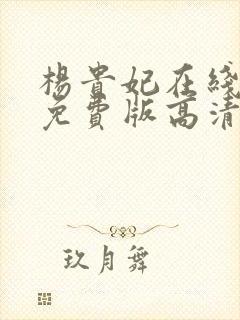 楊貴妃在綫
免費版高清
玖月舞